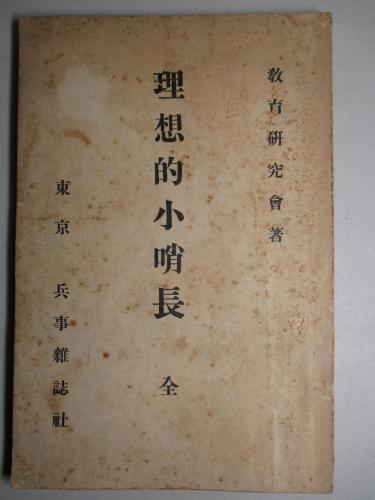 敎育硏究會著
理想的小哨長 全
東京 兵事雜誌社